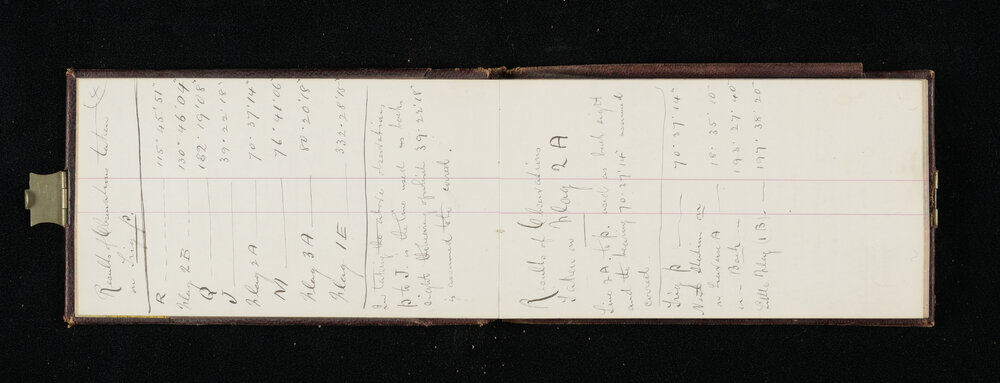 Results of Observations taken
on Trig β.
R 115° 45' 51"
Flag 2B 130° 46' 04"
Q 182° 19' 08"
J 39. 22. 18"
Flag 2A 70. 37. 14"
M 76° 41' 06"
Flag 3A 80° 20' 18"
Flag 1E 332. 28 15"
In taking the above observations
β to J. is the line used as back
sight bearing of which 39. 22. 18"
is assumed to be correct.
Results of Observations
Taken on Flag 2A
Line 2A to β. used as back sight
and the bearing 70° 37' 14" assumed
correct.
Trig β 70. 37. 14"
Note Station on 18. 35. 10"
A
Bank 193. 27. 40"
Little Flag 1B. 197. 38. 20"